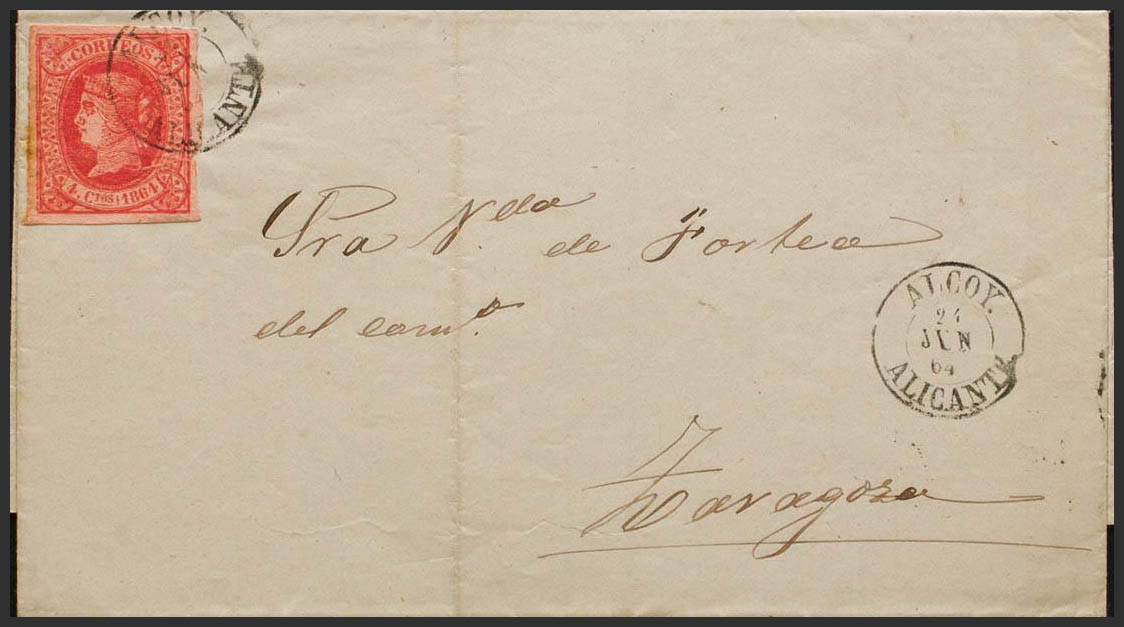 CORREOS
4 CTOS 1864
ALICANTE
Sra V.da de Fortea
del com.o
ALCOY.
24
JUN
64
ALICANTE
Zaragoza